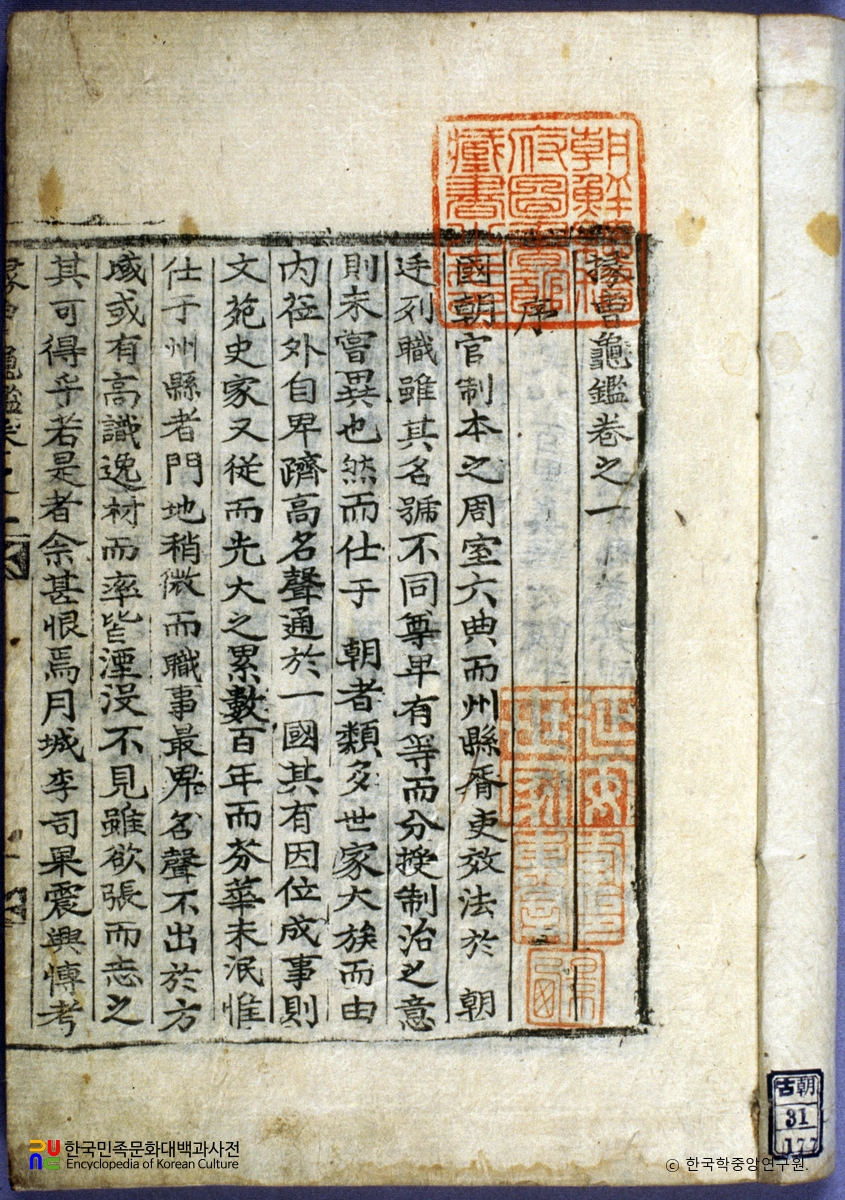 掾曹龜鑑卷之一
序
國朝官制本之周室六典而州縣胥吏效法於 朝
廷列職雖其名號不同尊卑有等而分掾制治之意
則未嘗異也然而仕于 朝者類多世家大族而由
内莅外自卑躋高名聲通於一國其有因位成事則
文苑史家又從而光大之累數百年而芬華未泯惟
仕于州縣者門地稍微而職事最卑名聲不出於方
域或有高識逸材而率皆湮沒不見雖欲張而志之
其可得乎若是者余甚恨焉月城李司果震興愽考
掾曹龜鑑卷之一
朝鮮總督府圖書館藏書之印
古朝
31
177
한국민족문화대백과사전
Encyclopedia of Korean Culture
© 한국학중앙연구원.